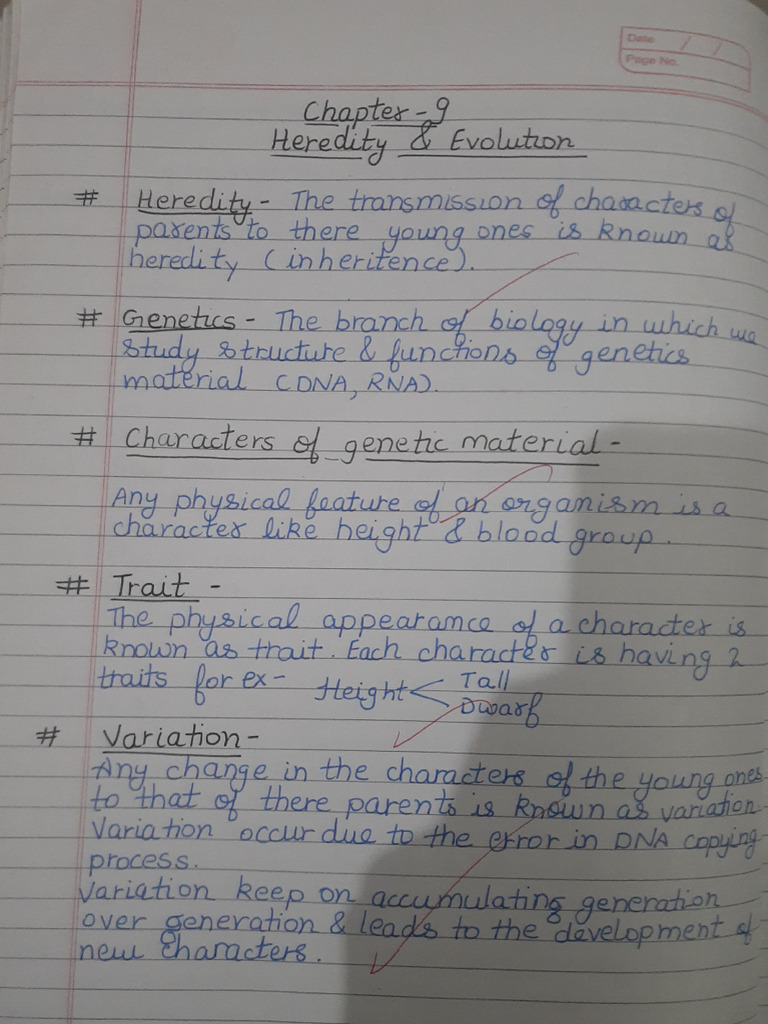 Date / /
Page No.
Chapter - 9
Heredity & Evolution
# Heredity - The transmission of characters of
parents to there young ones is known as
heredity (inheritence).
# Genetics - The branch of biology in which we
study structure & functions of genetics
material (DNA, RNA).
# Characters of genetic material -
Any physical feature of an organism is a
character like height & blood group.
# Trait -
The physical appearance of a character is
known as trait. Each character is having 2
traits for ex- Height < Tall
Dwarf
# Variation -
Any change in the characters of the young ones
to that of there parents is known as variation
Variation occur due to the error in DNA copying
process.
Variation keep on accumulating generation
over generation & leads to the development of
new characters.